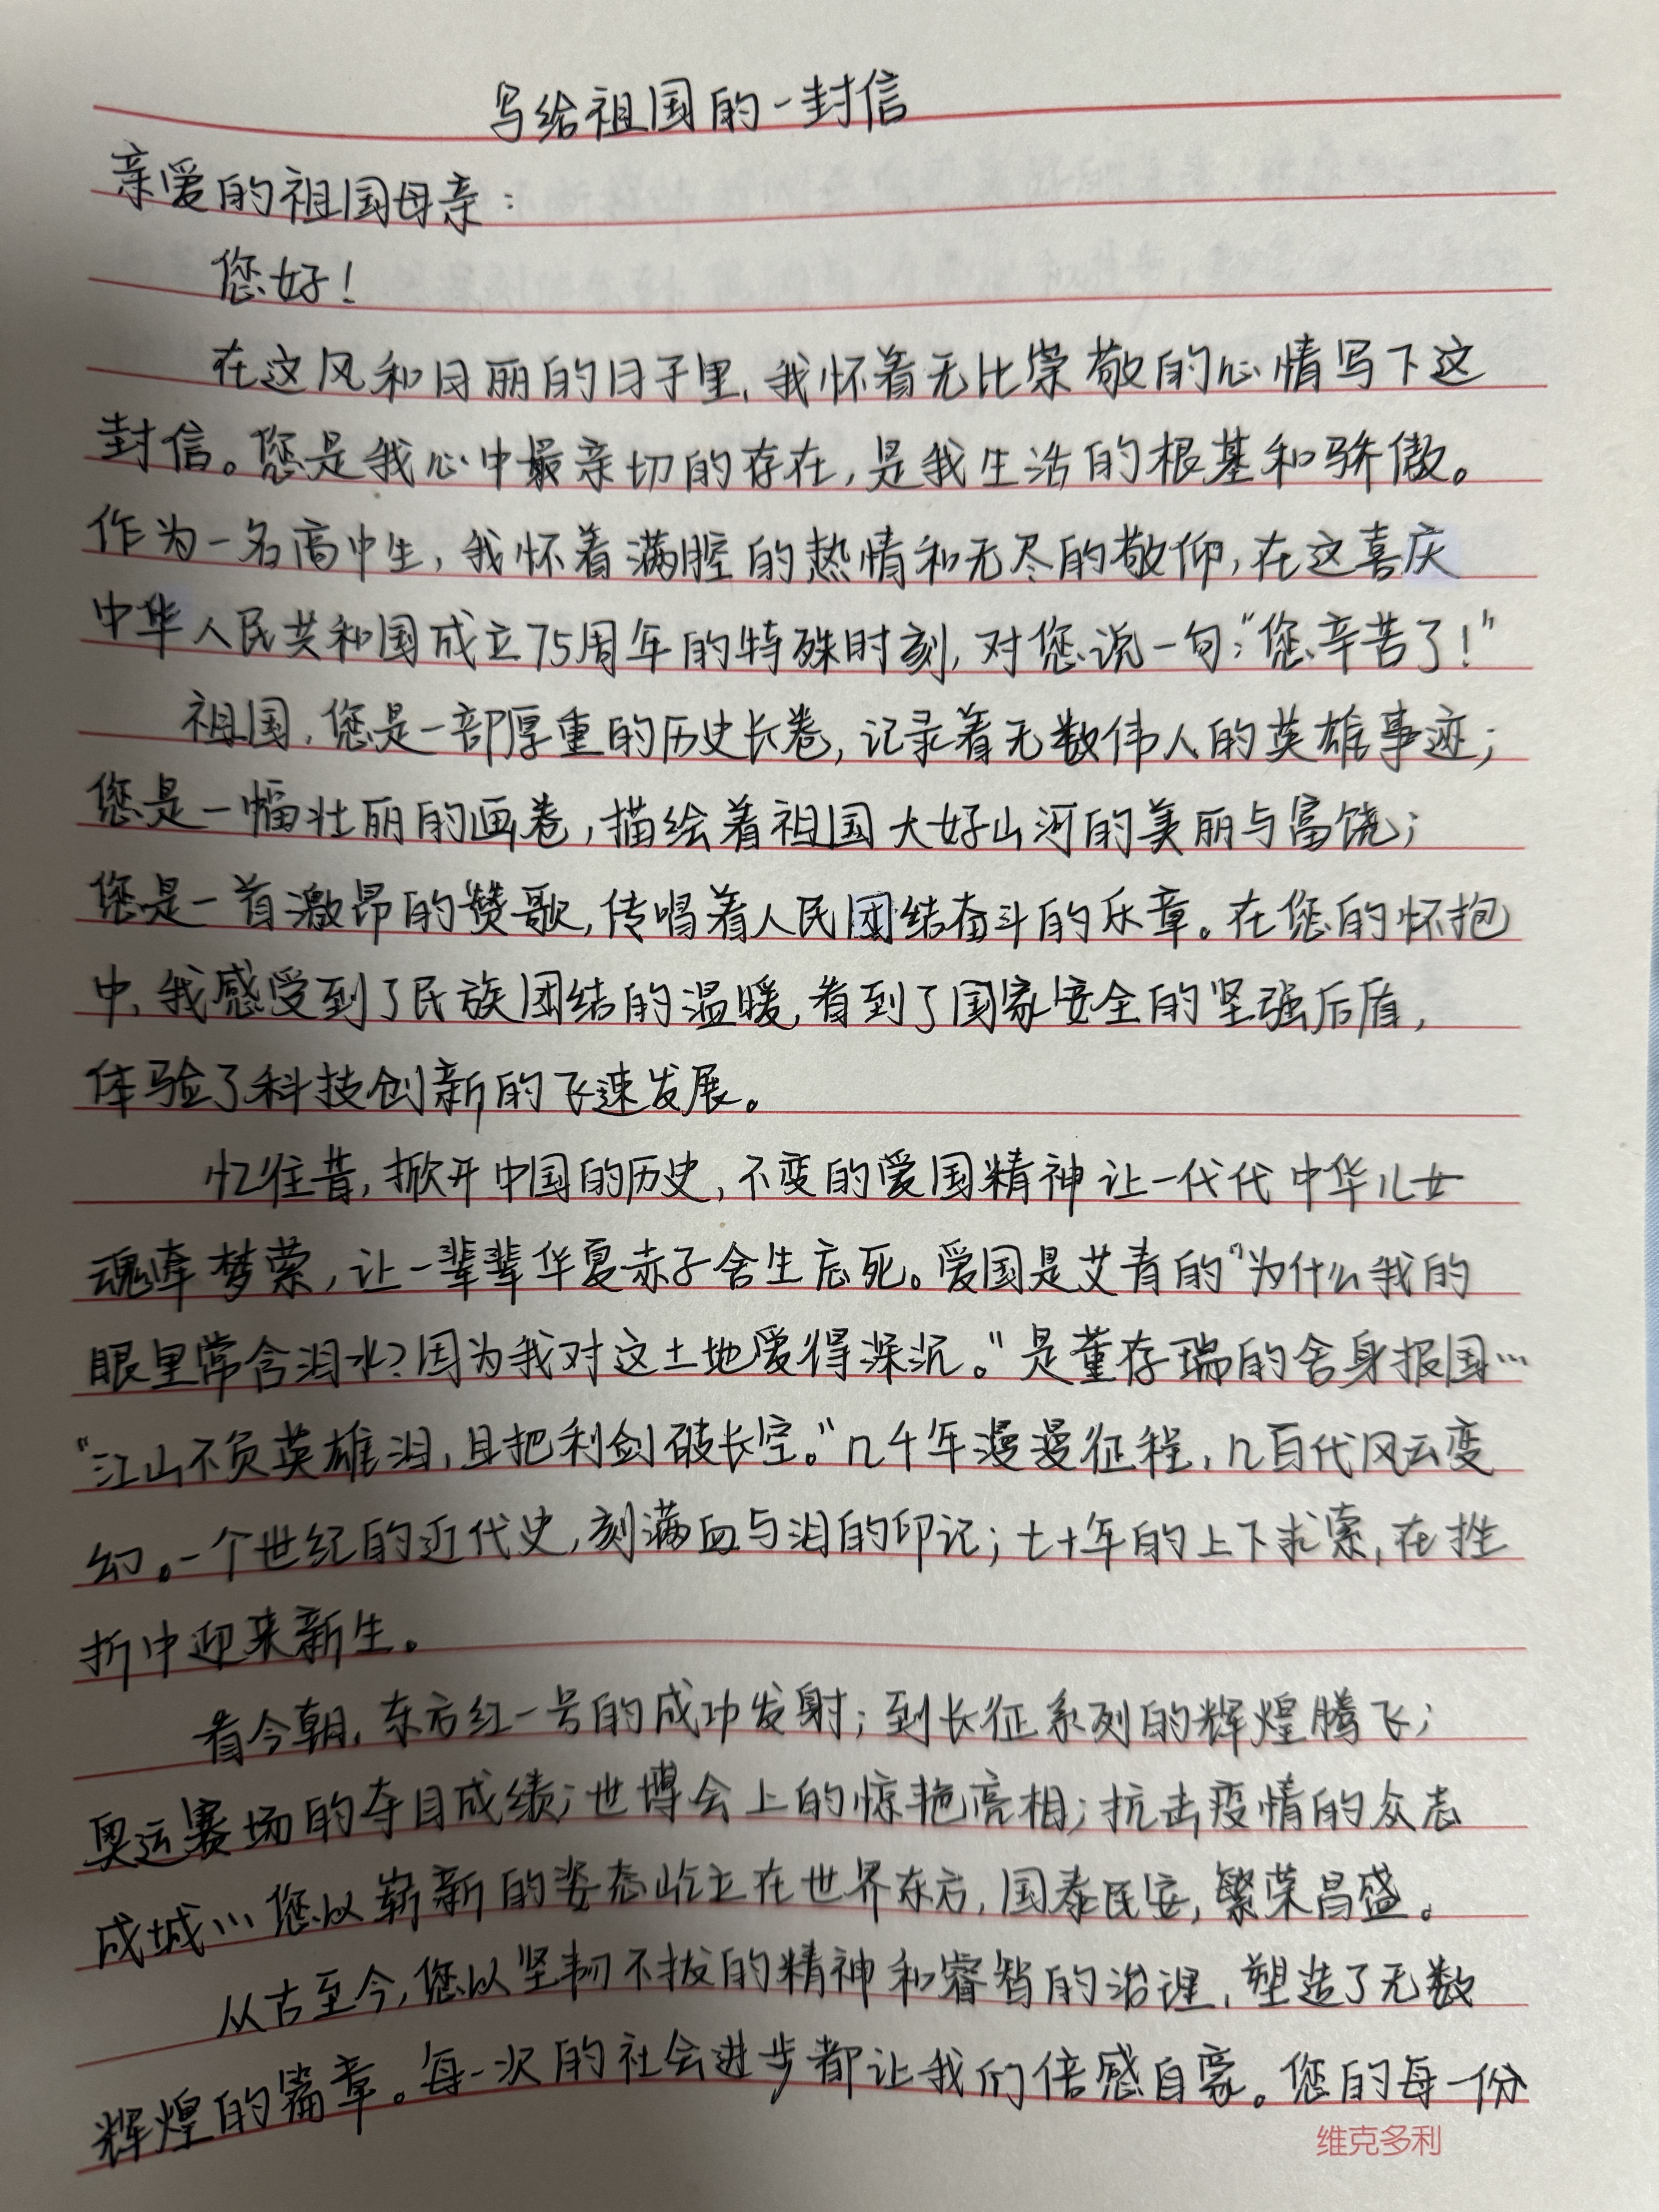 写给祖国的一封信
亲爱的祖国母亲：
您好！
在这风和日丽的日子里,我怀着无比崇敬的心情写下这
封信。您是我心中最亲切的存在,是我生活的根基和骄傲。
作为一名高中生,我怀着满腔的热情和无尽的敬仰,在这喜庆
中华人民共和国成立75周年的特殊时刻,对您说一句:"您辛苦了!"
祖国,您是一部厚重的历史长卷,记录着无数伟人的英雄事迹;
您是一幅壮丽的画卷,描绘着祖国大好山河的美丽与富饶;
您是一首激昂的赞歌,传唱着人民团结奋斗的乐章。在您的怀抱
中,我感受到了民族团结的温暖,看到了国家安全的坚强后盾,
体验了科技创新的飞速发展。
忆往昔,掀开中国的历史,不变的爱国精神让一代代中华儿女
魂牵梦萦,让一辈辈华夏赤子舍生忘死。爱国是艾青的"为什么我的
眼里常含泪水?因为我对这土地爱得深沉。"是董存瑞的舍身报国…
"江山不负英雄泪,且把利剑破长空。"几千年漫漫征程,几百代风云变
幻。一个世纪的近代史,刻满血与泪的印记;七十年的上下求索,在挫
折中迎来新生。
看今朝,东方红一号的成功发射;到长征系列的辉煌腾飞;
奥运赛场的夺目成绩;世博会上的惊艳亮相;抗击疫情的众志
成城…您以崭新的姿态屹立在世界东方,国泰民安,繁荣昌盛。
从古至今,您以坚韧不拔的精神和睿智的治理,塑造了无数
辉煌的篇章。每一次的社会进步都让我们倍感自豪。您的每一份
维克多利